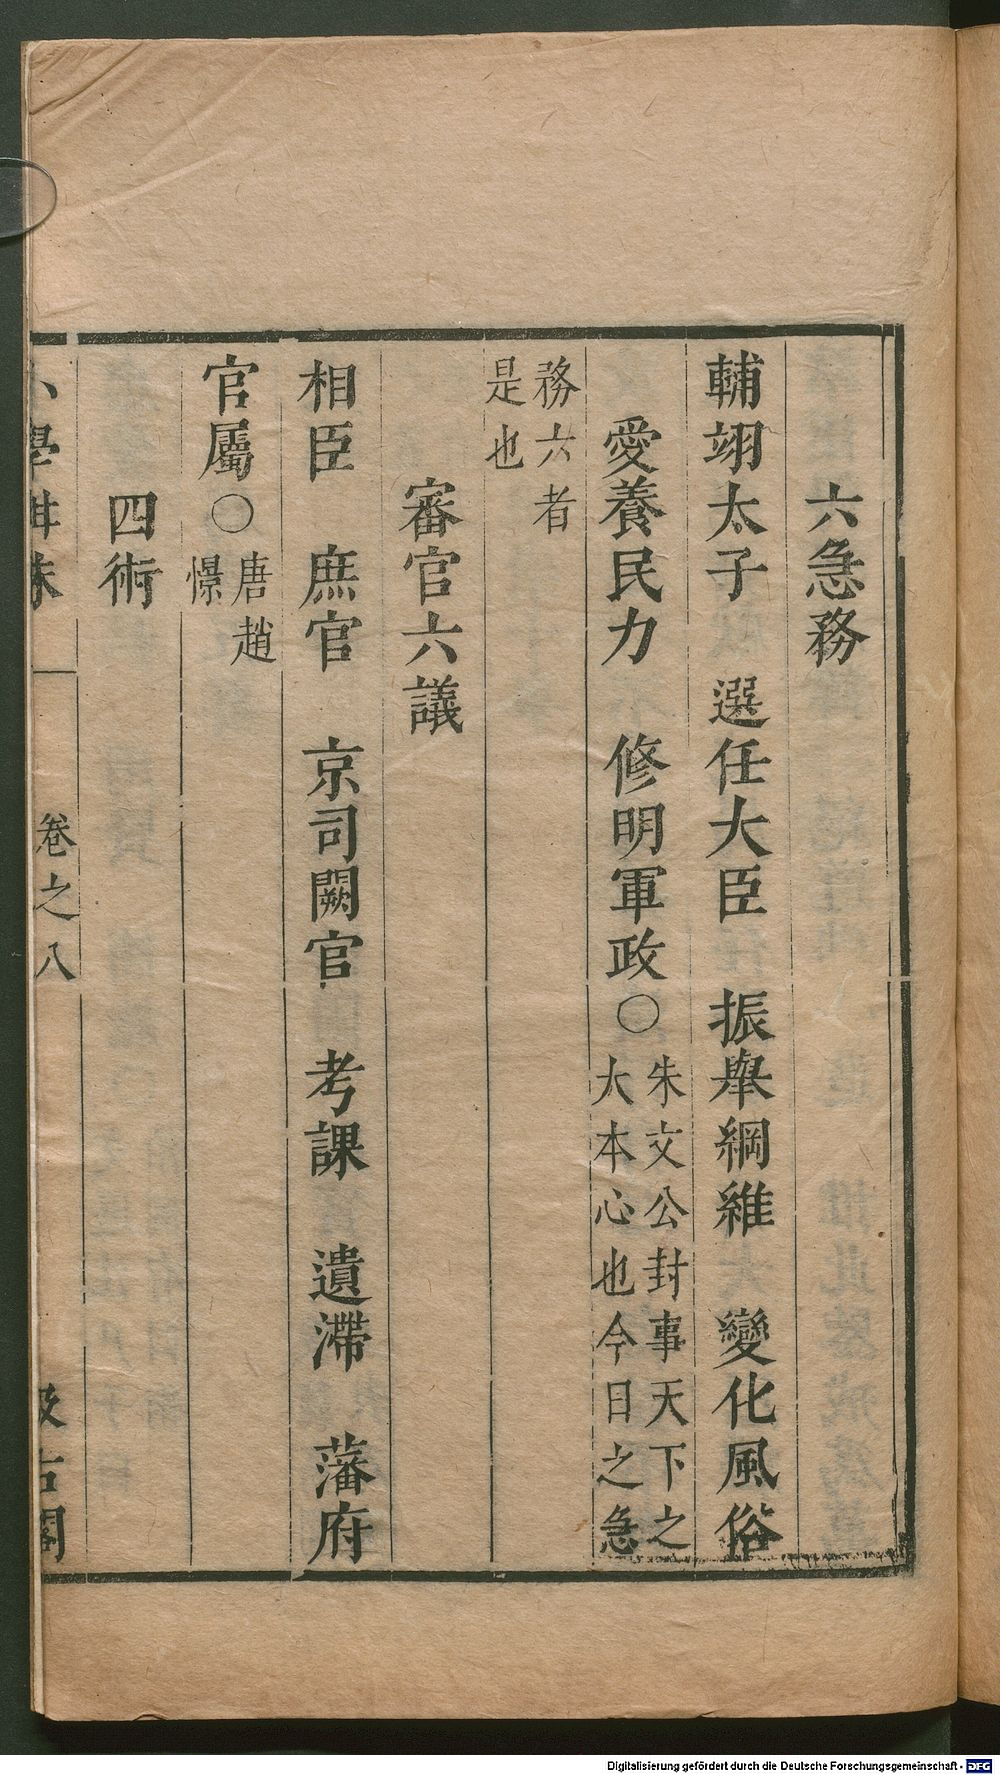 六急務
輔翊太子　選任大臣　振舉綱維　變化風俗
愛養民力　修明軍政○朱文公封事天下之
大本心也今日之急
務六者
是也
審官六議
相臣　庶官　京司闕官　考課　遺滯　藩府
官屬○唐趙
憬
四術
小學紺珠　卷之八　汲古閣
Digitalisierung gefördert durch die Deutsche Forschungsgemeinschaft - DFG